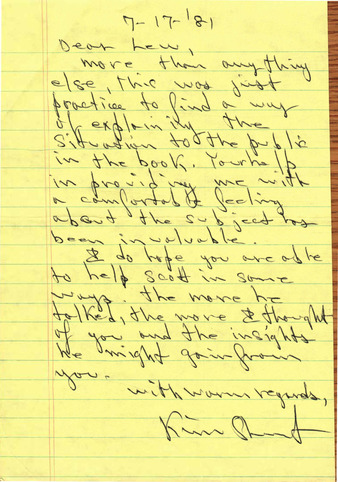 7-17-'81
Dear Lew,
more than anything
else, this was just
practice to find a way
of explaining the
situation to the public
in the book. Your help
in providing me with
a comfortable feeling
about the subject has
been invaluable.
I do hope you are able
to help Scott in some
ways. The more he
talked, the more I thought
of you and the insights
he might gain from
you.
with warm regards,